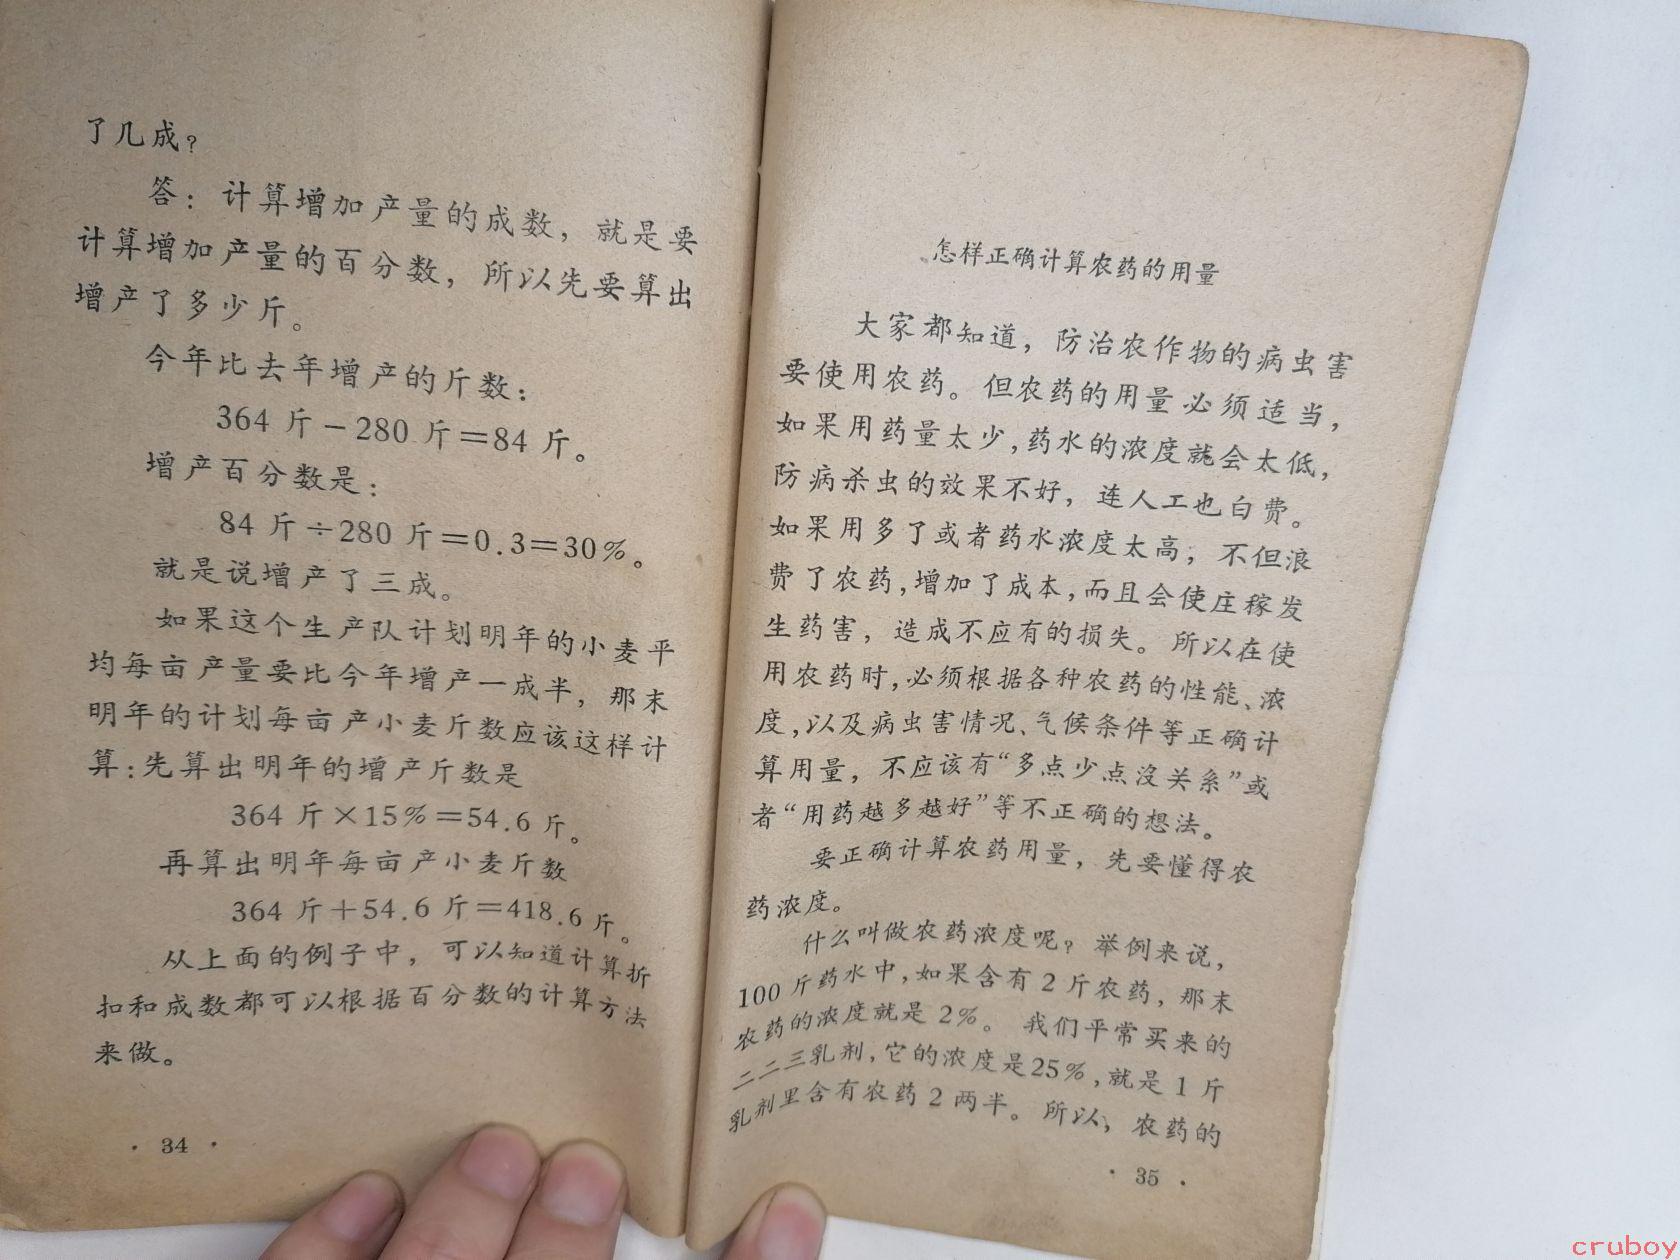 了几成？
答：计算增加产量的成数，就是要
计算增加产量的百分数，所以先要算出
增产了多少斤。
今年比去年增产的斤数：
364 斤－280 斤＝84 斤。
增产百分数是：
84 斤÷280 斤＝0.3＝30%。
就是说增产了三成。
如果这个生产队计划明年的小麦平
均每亩产量要比今年增产一成半，那末
明年的计划每亩产小麦斤数应该这样计
算：先算出明年的增产斤数是
364 斤×15%＝54.6 斤。
再算出明年每亩产小麦斤数
364 斤＋54.6 斤＝418.6 斤。
从上面的例子中，可以知道计算折
扣和成数都可以根据百分数的计算方法
来做。
· 34 ·
怎样正确计算农药的用量
大家都知道，防治农作物的病虫害
要使用农药。但农药的用量必须适当，
如果用药量太少，药水的浓度就会太低，
防病杀虫的效果不好，连人工也白费。
如果用多了或者药水浓度太高，不但浪
费了农药，增加了成本，而且会使庄稼发
生药害，造成不应有的损失。所以在使
用农药时，必须根据各种农药的性能、浓
度，以及病虫害情况、气候条件等正确计
算用量，不应该有“多点少点沒关系”或
者“用药越多越好”等不正确的想法。
要正确计算农药用量，先要懂得农
药浓度。
什么叫做农药浓度呢？举例来说，
100 斤药水中，如果含有 2 斤农药，那末
农药的浓度就是 2%。我们平常买来的
二二三乳剂，它的浓度是25%，就是 1 斤
乳剂里含有农药 2 两半。所以，农药的
· 35 ·
cruboy